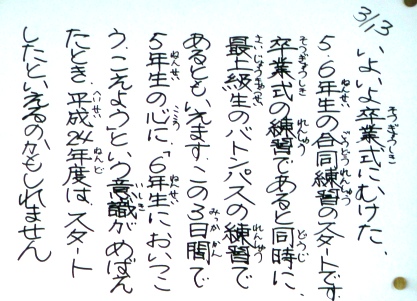 3/13
いよいよ卒業式にむけた、
5、6年生の合同練習のスタートです。
卒業式の練習であると同時に、
最上級生のバトンパスの練習で
あるともいえます。この3日間で
5年生の心に、「6年生においつこ
う、こえよう」という意識がめばえ
たとき、平成24年度は、スタート
したといえるのかもしれません